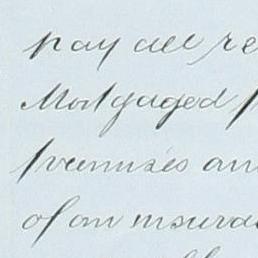 pay all re
Mortgaged p
premises an
of an insura